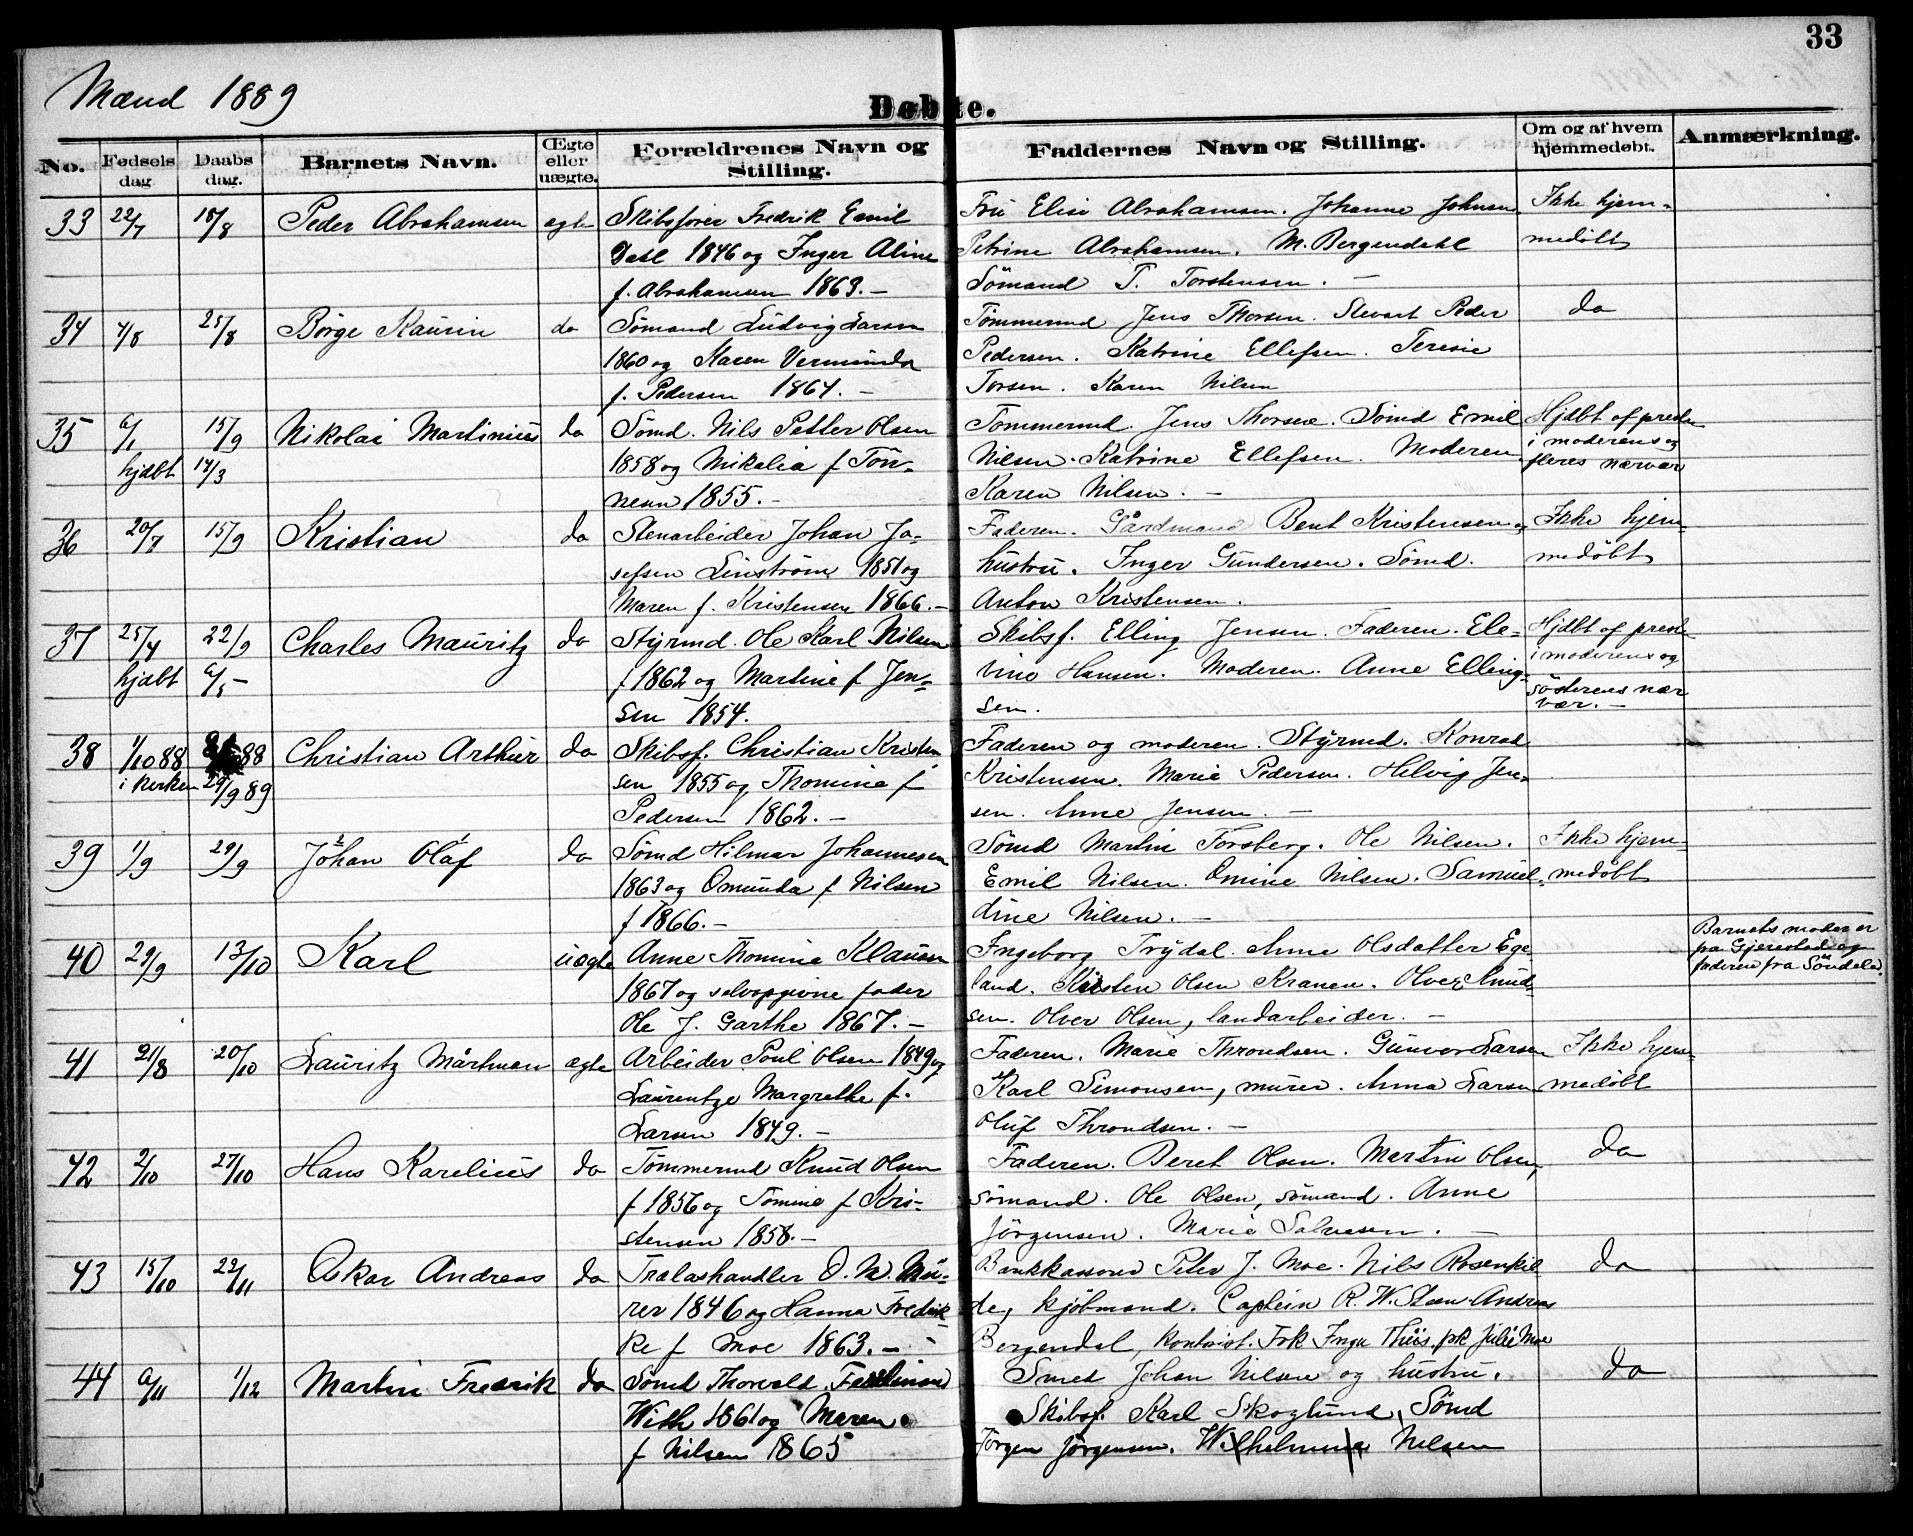 33
Mænd 1889
Døbte.
No. Fødsels dag Daabs dag. Barnets Navn. Œgte eller uægte. Forældrenes Navn og Stilling. Faddernes Navn og Stilling. Om og af hvem hjemmedøbt. Anmærkning.
33 22/7 18/8 Peder Abrahamsen ægte Skibsfører Fredrik Emil Fru Elise Abrahamsen. Johanne Johnsen Ikke hjem-
Dahl 1846 og Inger Aline Petrine Abrahamsen. M. Bergendahl medöbt
f. Abrahamsen 1863. - Sömand T. Torstensen. -
34 4/8 25/8 Börge Kaurin do Sömand Ludvig Larsen Tömmermd Jens Thorsen. Stevart Peder do
1860 og Karen Vermunda Pedersen. Katrine Ellefsen. Teresie
f. Pedersen 1864. - Torsen. Karen Nilsen
35 6/1 15/9 Nikolai Martinius do Sömd. Nils Petter Olsen Tömmermd. Jens Thorsen. Sömd Emil Hjdbt af presten
hjdbt 14/3 1858 og Mikalia f Tön- Nilsen. Katrine Ellefsen. Moderen i moderens og
nesen 1855. - Karen Nilsen. - fleres nærvær
36 20/7 15/9 Kristian do Stenarbeider Johan Jo- Faderen. Gårdmand Bent Kristensen og Ikke hjem-
sefsen Linström 1851 og hustru. Inger Gundersen. Sömd. medöbt
Maren f. Kristensen 1866. - Anton Kristensen.
37 25/4 22/9 Charles Mauritz do Styrmd. Ole Karl Nilsen Skibsf. Elling Jensen. Faderen. Ele- Hjdbt af presten
hjdbt 6/5 - f 1862 og Martine f Jen- vine Hansen. Moderen. Anne Elling- i moderens og
sen 1854. sen. søsterens nær
vær. -
38 1/10 88 88 Christian Arthur do Skibsf. Christian Kristen Faderen og moderen. Styrmd. Konrad
i kirken 29/9 89 sen 1855 og Thomine f Kristensen. Marie Pedersen. Helvig Jen-
Pedersen 1862. - sen. Anne Jensen. -
39 1/9 29/9 Johan Olaf do Sömd Hilmar Johannesen Sömd Martin Forsberg. Ole Nilsen. Ikke hjem-
1863 og Omunda f Nilsen Emil Nilsen. Omine Nilsen. Samuel- medöbt
f 1866. - dine Nilsen. -
40 29/9 13/10 Karl uægte Anne Thomine Klausen Ingeborg Trydal. Anne Olsdatter Ege- Barnets moder er
1867 og selvopgivne fader land. Kirsten Olsen Kranen. Olver Knud- fra Gjerestad og
Ole J. Garthe 1867. - sen. Olver Olsen, landarbeider. - faderen fra Söndeled.
41 21/8 20/10 Lauritz Mårtman ægte Arbeider Poul Olsen 1849 og Faderen. Marie Throndsen. Gunvor Larsen Ikke hjem-
Laurentze Margrethe f. Karl Simonsen, murer. Anna Larsen medöbt
Larsen 1849. - Oluf Throndsen. -
42 2/10 27/10 Hans Karelius do Tömmermd Knud Olsen Faderen. Beret Olsen. Martin Olsen, do
f 1856 og Tomine f Kri- sömand. Ole Olsen, sömand. Anne
stensen 1858. - Jörgensen. Marie Salvesen. -
43 15/10 22/11 Oskar Andreas do Trælashandler O. M. Mü- Bankkasserer Peter J. Moe. Nils Rosenkil- do
rer 1846 og Hanna Fredrik- de, kjöbmand. Captein R. W. Steen. Andreas
ke f Moe 1863. - Bergendal, kontorist. Frk Inga Thiis, frk Julie Moe
44 6/11 1/12 Martin Fredrik do Sömd Thorvald Ferdinand Smed Johan Nilsen og hustru. do
With 1861 og Maren Skibsf. Karl Skoglund, Sömd
f Nilsen 1865 Jörgen Jörgensen. Wilhelmine Nilsen